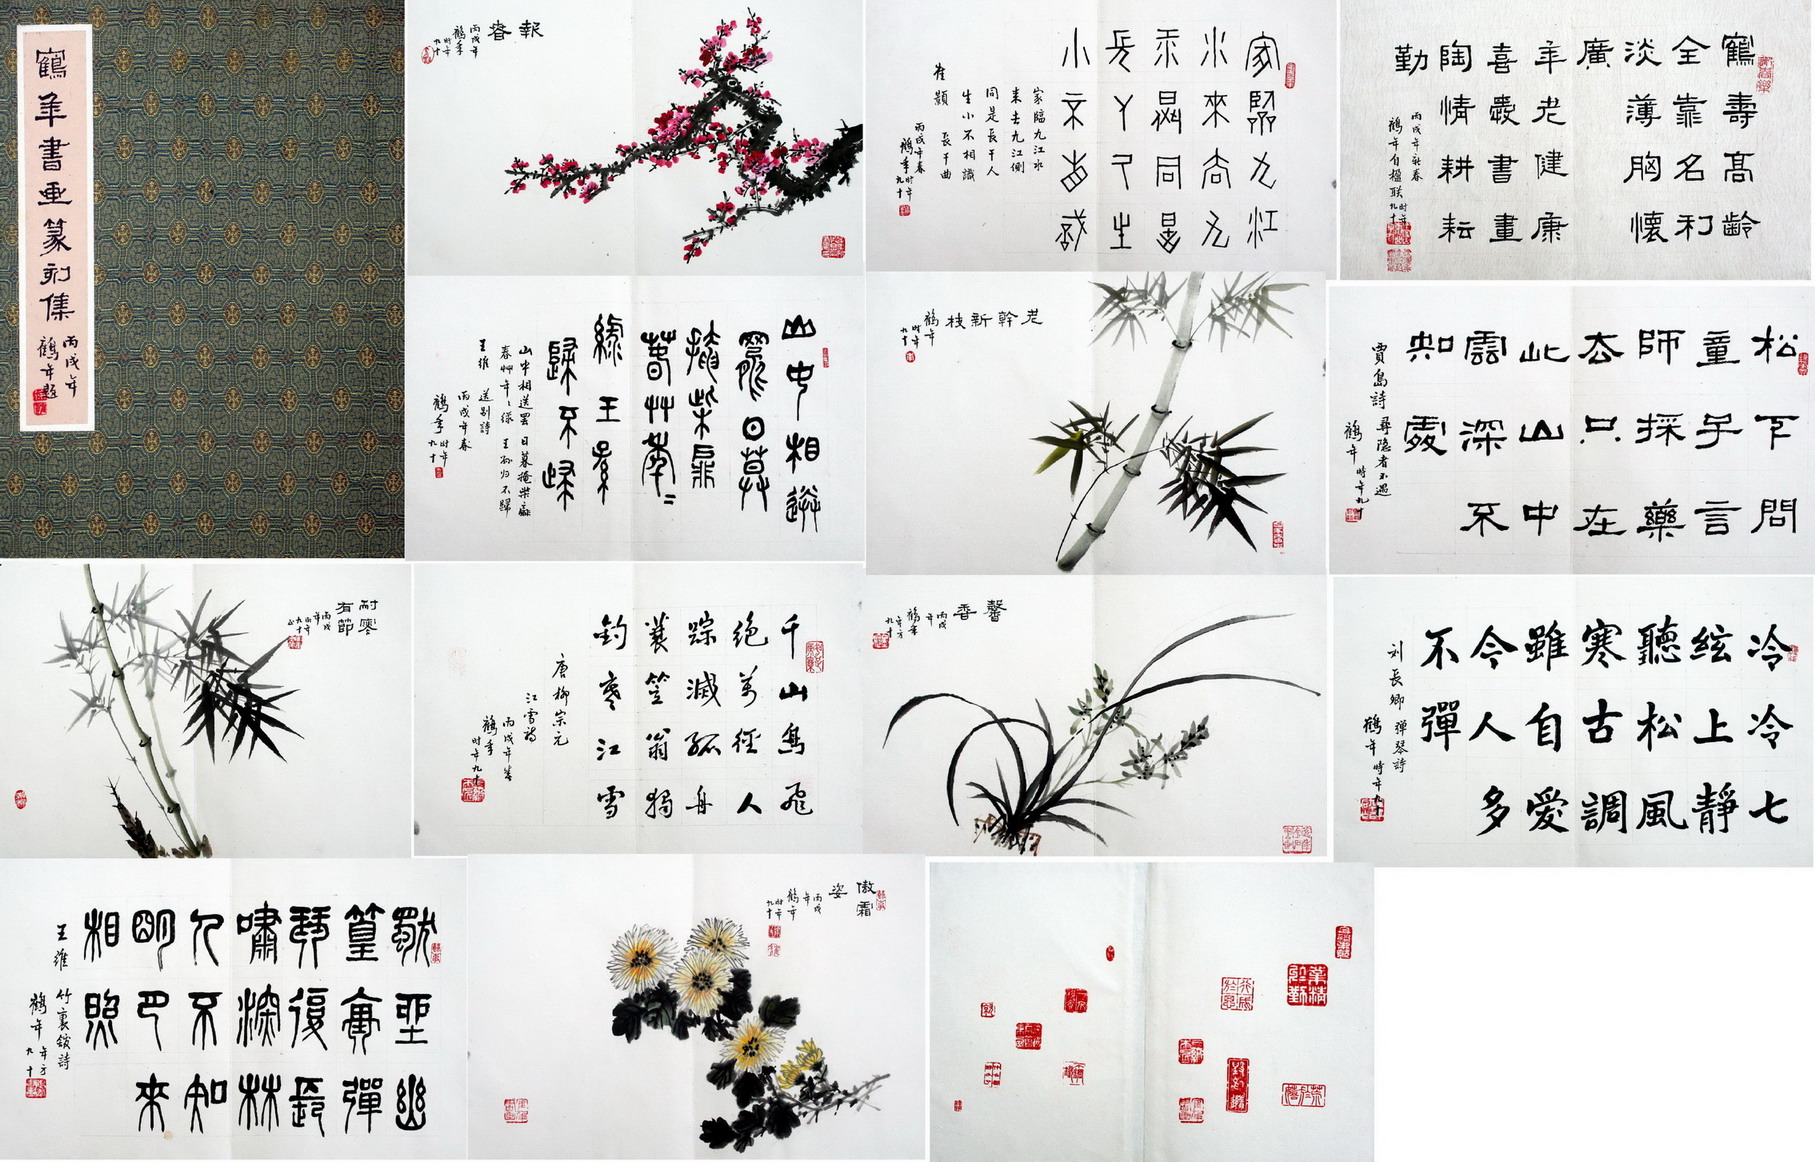 鶴年書画篆刻集
丙戌年
鶴年題
報春
丙戌年
鶴年
时年九十
家臨九江
水來去九
江側同是
長干人生
小不相識
家臨九江水
来去九江側
同是長干人
生小不相識
崔顥 長干曲
丙戌年春
鶴年时年九十
鶴壽高齡
全靠名利
淡薄胸懷
廣
年老健康
喜歡書畫
陶情耕耘
勤
丙戌年
鶴年自楹联时年九十
山中相送
罷日暮
掩柴扉
春艸年〻
緑王孫
歸不歸
山中相送罢 日暮掩柴扉
春艸年〻绿 王孙归不歸
王维 送别詩
丙戌年春
鶴年时年九十
老幹新枝
鶴年
时年九十
松下問
童子言
師採藥
去只在
此山中
雲深不
知處
賈島詩 尋隐者不遇
鶴年时年九十
耐寒
有節
丙戌年
时年九十
千山鳥飛
绝万徑人
踪滅孤舟
蓑笠翁獨
釣寒江雪
唐柳宗元
江雪詩
丙戌年春
鶴年时年九十
馨香
丙戌年
鶴年
年方九十
冷冷七
絃上靜
聽松風
寒古調
雖自愛
今人多
不彈
刘長卿 彈琴詩
鶴年时年九十
獨坐幽
篁裏彈
琴復長
嘯深林
人不知
明月來
相照
王维 竹裏舘詩
鶴年年方九十
傲霜
姿
丙戌年
鶴年
时年九十
業精於勤